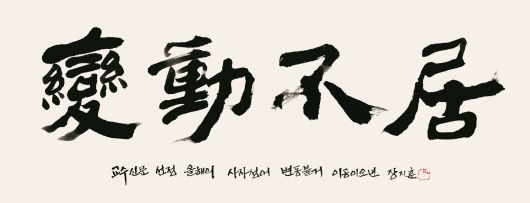 變動不居
교수신문 선정 올해의 사자성어 변동불거 이응이소년 장지훈